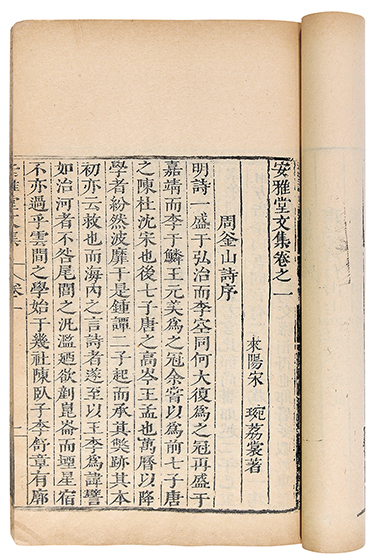 安雅堂文集卷之一
來陽宋 琬荔裳著
周釜山詩序
明詩一盛于弘治而李空同何大復爲之冠再盛于
嘉靖而李于鱗王元美爲之冠余嘗以爲前七子唐
之陳杜沈宋也後七子唐之高岑王孟也萬曆以降
學者紛然波靡于是鍾譚二子起而承其獘跡其本
初亦云救也而海內之言詩者遂至以王李爲諱譬
如治河者不咎尾閭之汎濫廼欲剷崑崙而堙星宿
不亦過乎雲間之學始于幾社陳臥子李舒章有廓
安雅堂文集 卷一 一